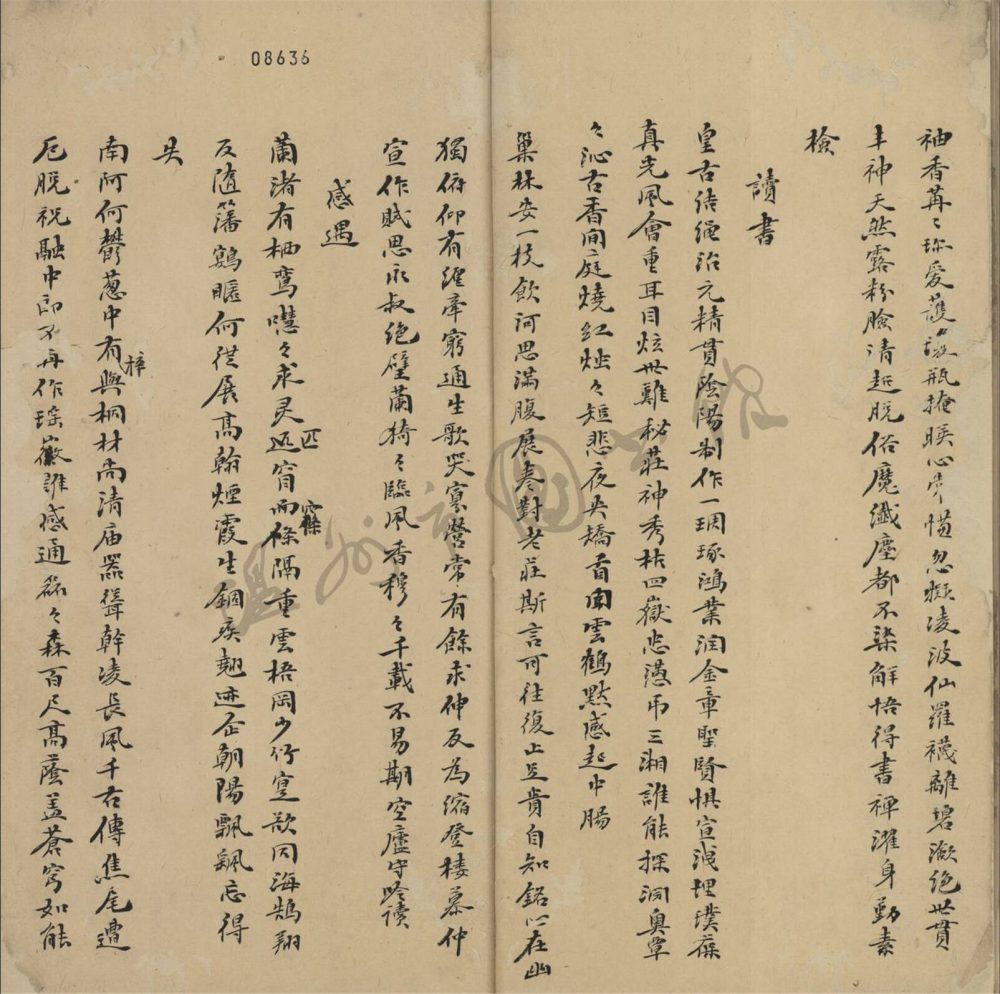 袖香苒々珎愛護
瓶掩
心常惜忽凝凌波仙羅襪離碧瀲絶世貫
丰神天然露粉臉清超脱俗魔纖塵都不染解悟得書禅濯身勤素
檢
讀書
皇古結繩治元精貫陰陽制作一琱琢鴻業潤金章聖賢惧宣洩埋璞葆
真光風會重耳目炫世難秘莊神秀枯四嶽悲憑吊三湘誰能探洞奥草
々沁古香閒庭燒紅燭々短悲夜央矯首南雲鶴黙感起中腸
巢林安一枝飲河思滿腹展卷對老莊斯言可往復止足貴自知銘心在幽
獨俯仰有纏牽窮通生歌哭寡營常有餘求伸反為縮登樓慕仲
宣作賦思永叔绝壁蘭猗々臨風香穆々千載不易期空廬守吟讀
感遇
蘭渚有栖鸞嘒々求灵匹迥窅而窱隔重雲梧岡少竹寔欲因海鵠翔
反随藩鷃暱何從展高翰煙霞生錮疾翹迹企朝陽飄颻忘得
失
南阿何鬱葱中有梓與桐材尚清庙器聳幹凌長風千右傳焦尾遭
厄脱祝融中郎不再作瑶徽誰感通磊々森百尺高蔭盖蒼穹如能
08636
溫州市圖書館